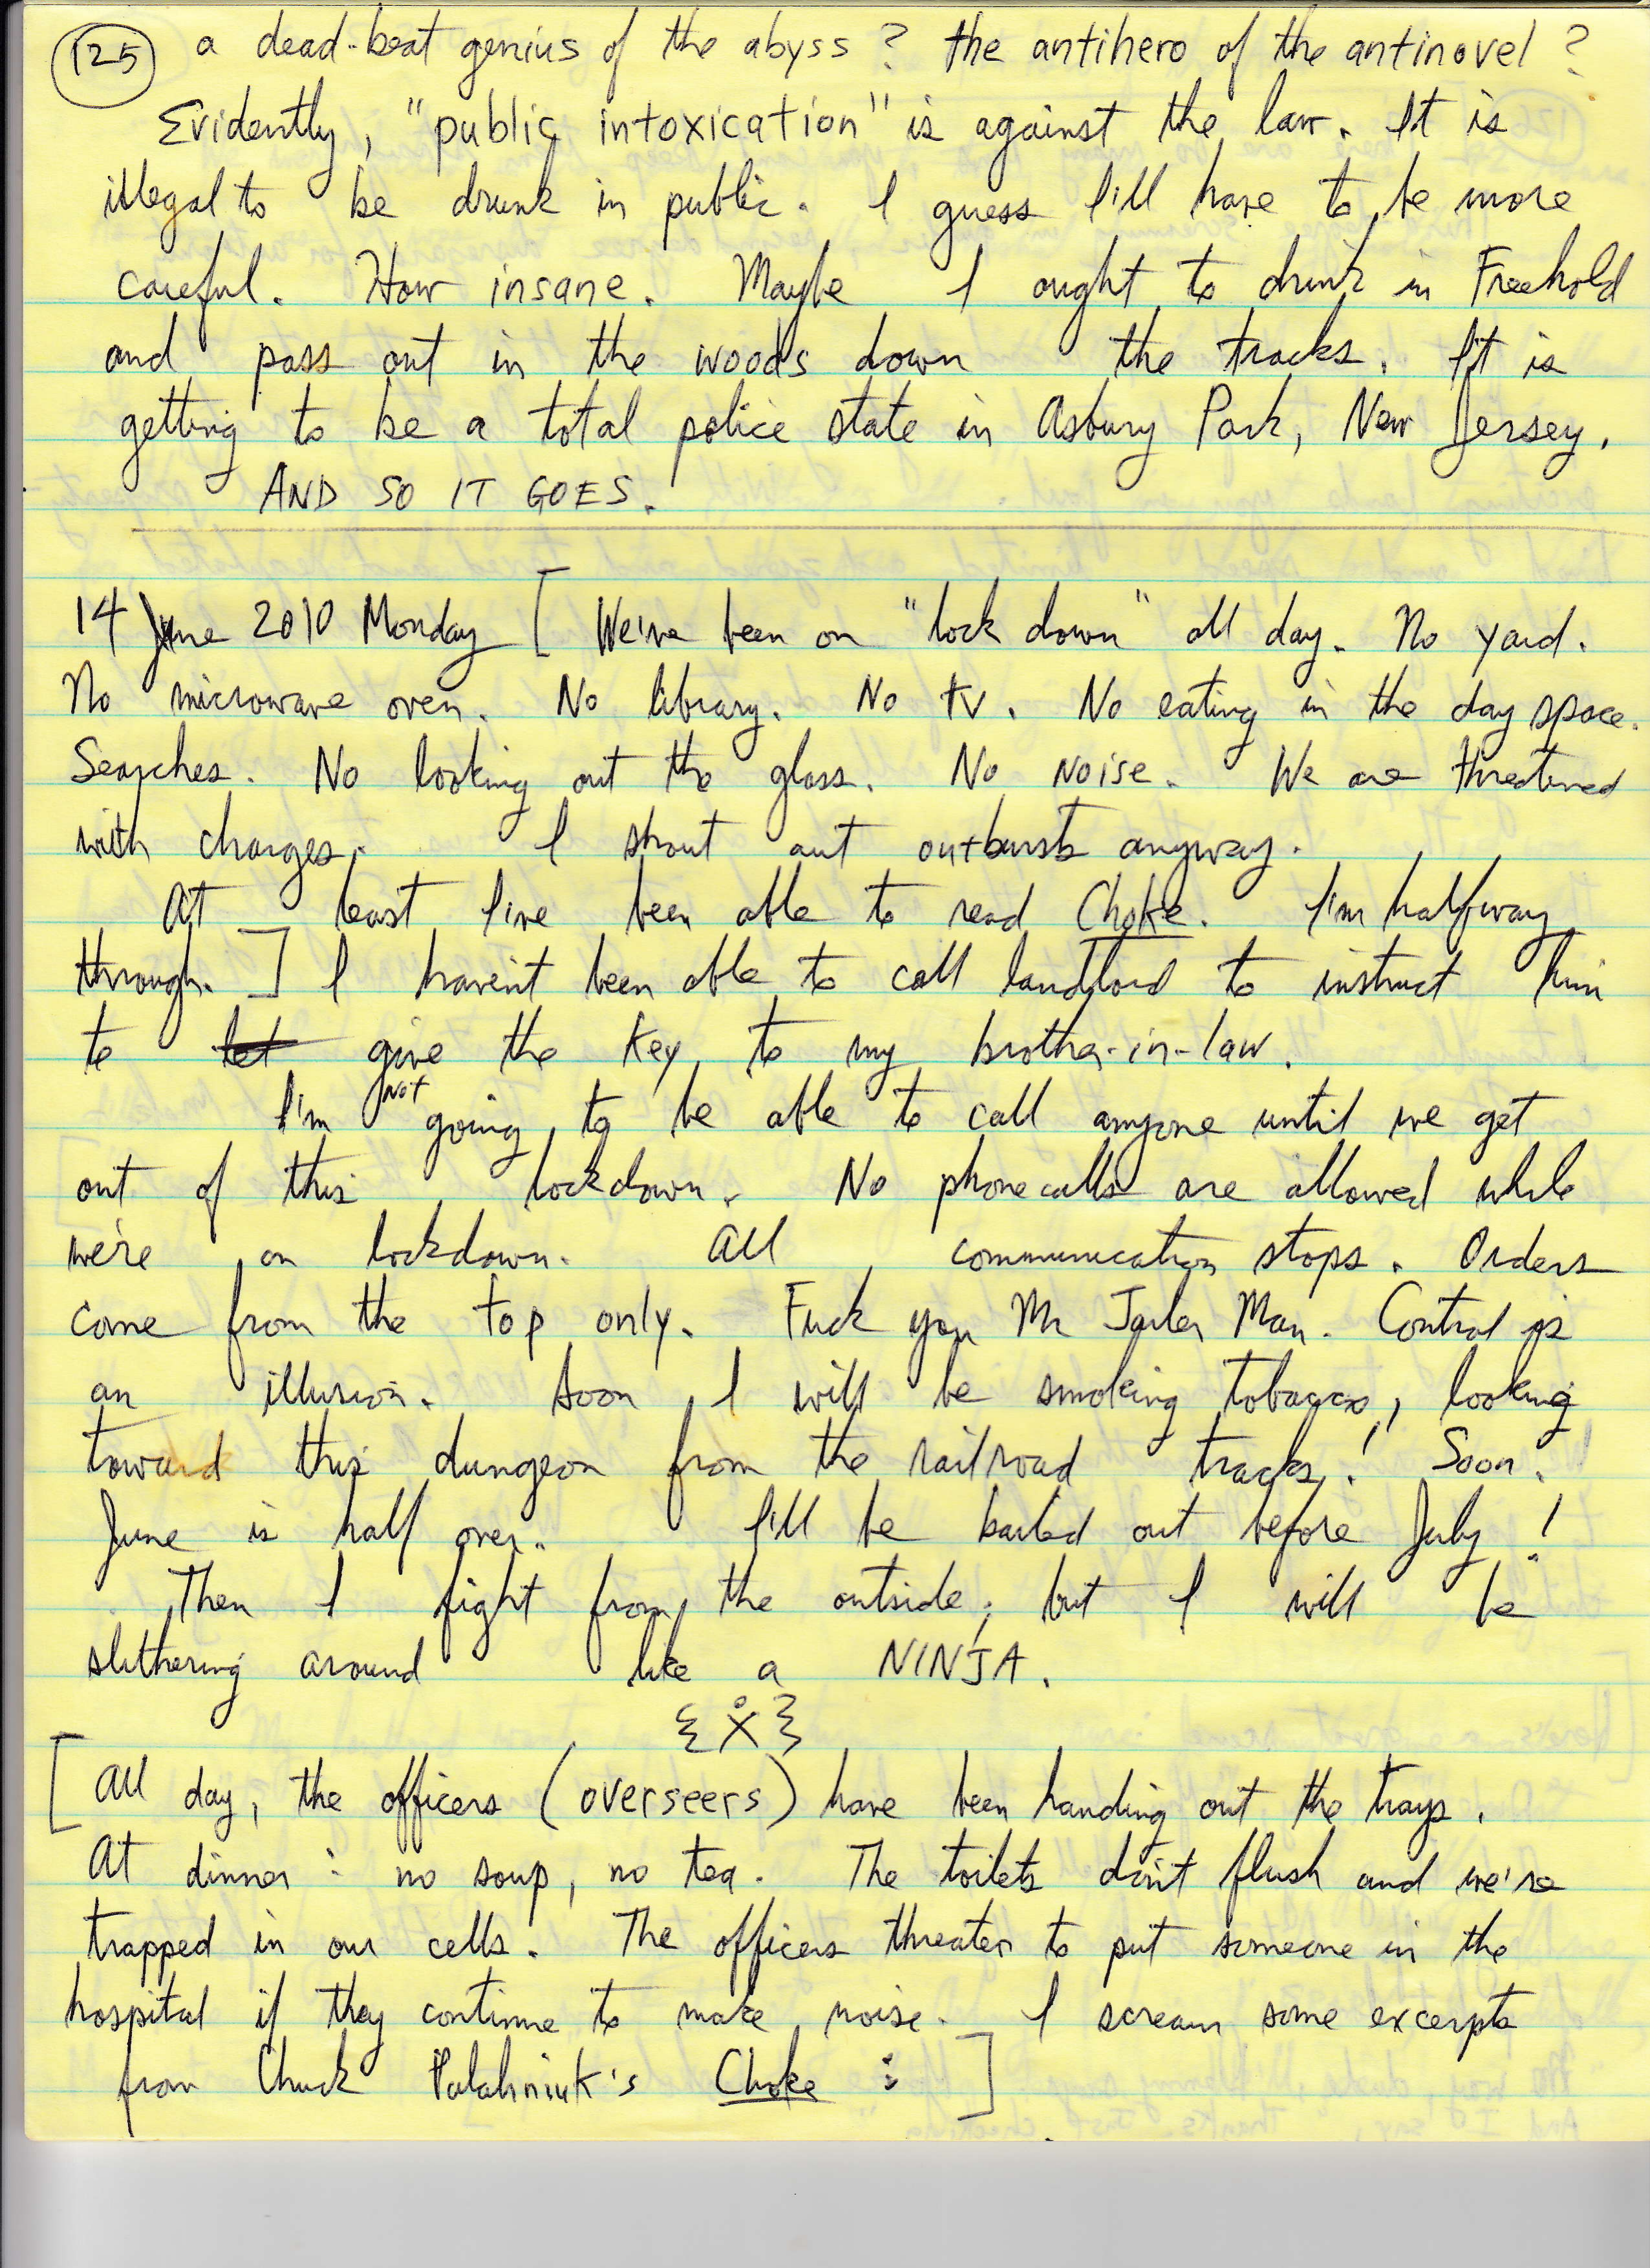 (125) a dead-beat genius of the abyss? the antihero of the antinovel?
Evidently, "public intoxication" is against the law. It is
illegal to be drunk in public. I guess I'll have to be more
careful. How insane. Maybe I ought to drink in Freehold
and pass out in the woods down the tracks. It is
getting to be a total police state in Asbury Park, New Jersey.
AND SO IT GOES.
14 June 2010 Monday [ We've been on "lock down" all day. No yard.
No microwave oven. No library. No tv. No eating in the day space.
Searches. No looking out the glass. No noise. We are threatened
with charges. I shout out outbursts anyway.
At least I've been able to read Choke. I'm halfway
through. ] I haven't been able to call landlord to instruct him
to let give the key to my brother-in-law.
I'm not going to be able to call anyone until we get
out of this lockdown. No phonecalls are allowed while
we're on lockdown. All communication stops. Orders
come from the top only. Fuck you Mr Jailer Man. Control is
an illusion. Soon I will be smoking tobacco, looking
toward this dungeon from the railroad tracks! Soon.
June is half over. I'll be bailed out before July!
Then I fight from the outside; but I will be
slithering around like a NINJA.
{ẋ}
[ All day, the officers (overseers) have been handing out the trays.
At dinner: no soup, no tea. The toilets don't flush and we're
trapped in our cells. The officers threaten to put someone in the
hospital if they continue to make noise. I scream some excerpts
from Chuck Palahniuk's Choke: ]